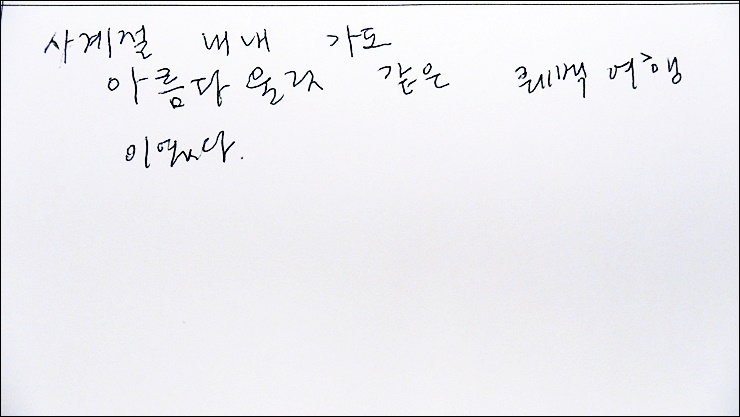 사계절 내내 가도
아름다울것 같은 퀘백 여행
이었다.